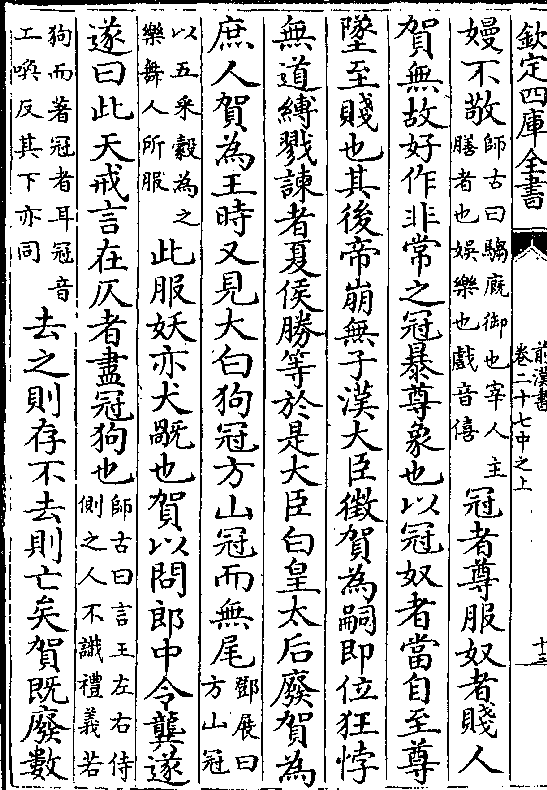 欽定四庫全書
前漢書
卷二十七中之上
十三
嫚不敬師古曰騶廐御也宰人主膳者也娛樂也戲音僖冠者尊服奴者賤人
賀無故好作非常之冠暴尊象也以冠奴者當自至尊
墜至賤也其後帝崩無子漢大臣徵賀為嗣即位狂悖
無道縛戮諫者夏侯勝等於是大臣白皇太后廢賀為
庶人賀為王時又見大白狗冠方山冠而無尾鄧展曰方山冠
以五采縠為之樂舞人所服此服妖亦犬旤也賀以問郎中令龔遂
遂曰此天戒言在仄者盡冠狗也師古曰言王左右侍側之人不識禮義若
狗而著冠者耳冠音工喚反其下亦同去之則存不去則亡矣賀既廢數